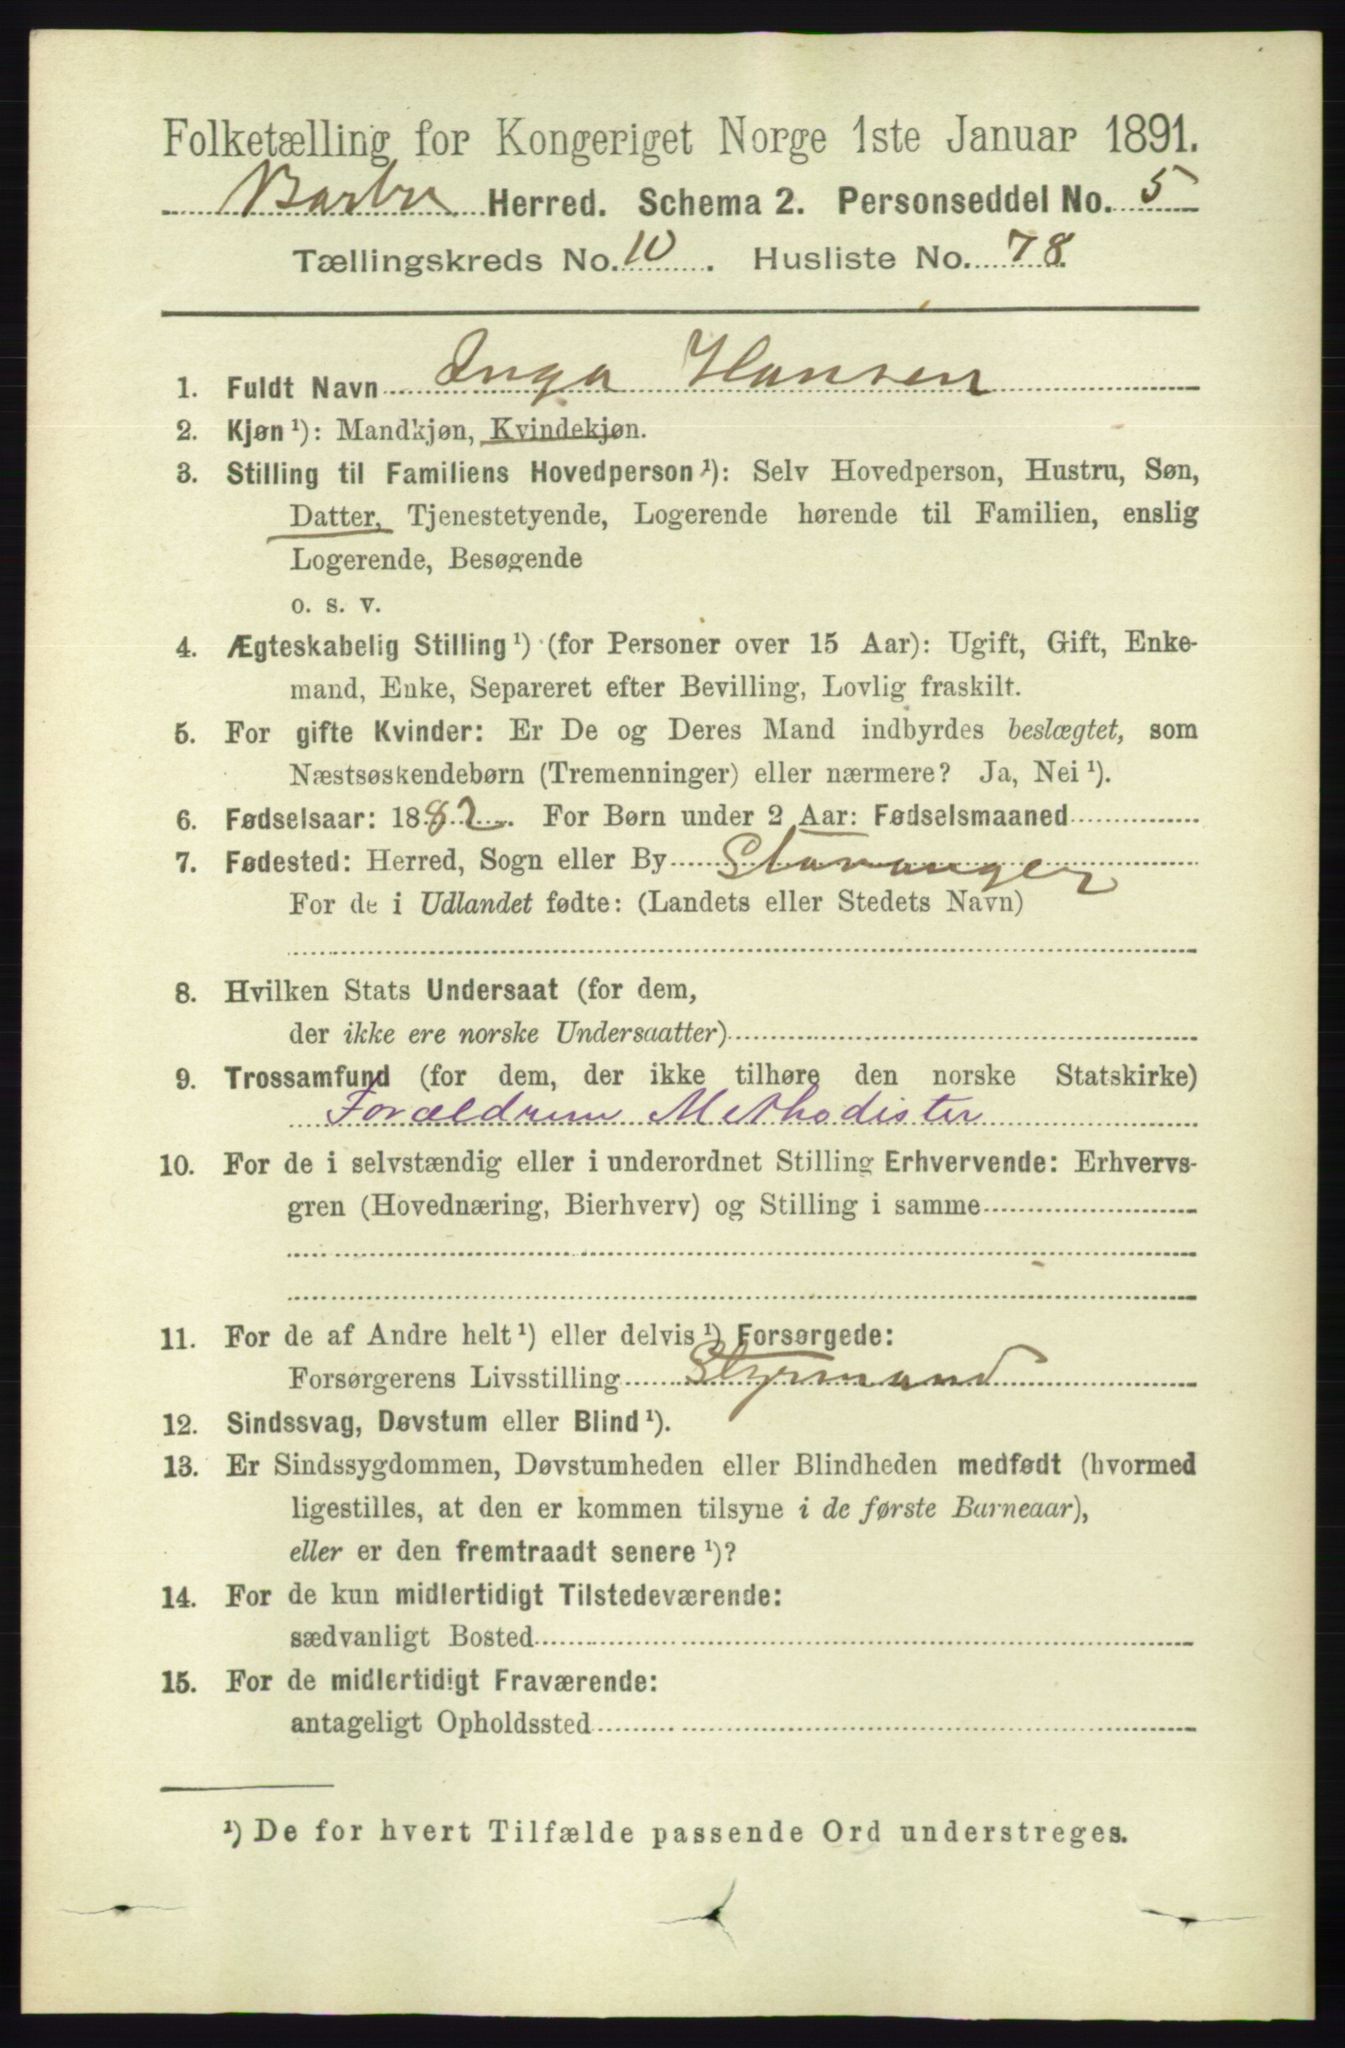 Folketælling for Kongeriget Norge 1ste Januar 1891.
Barbu Herred. Schema 2. Personseddel No. 5
Tællingskreds No. 10. Husliste No. 78
1. Fuldt Navn Inga Hansen
2. Kjøn ¹): Mandkjøn, Kvindekjøn.
3. Stilling til Familiens Hovedperson ¹): Selv Hovedperson, Hustru, Søn,
Datter, Tjenestetyende, Logerende hørende til Familien, enslig
Logerende, Besøgende
o. s. v.
4. Ægteskabelig Stilling ¹) (for Personer over 15 Aar): Ugift, Gift, Enke-
mand, Enke, Separeret efter Bevilling, Lovlig fraskilt.
5. For gifte Kvinder: Er De og Deres Mand indbyrdes beslægtet, som
Næstsøskendebørn (Tremenninger) eller nærmere? Ja, Nei ¹).
6. Fødselsaar: 1882. For Børn under 2 Aar: Fødselsmaaned
7. Fødested: Herred, Sogn eller By Stavanger
For de i Udlandet fødte: (Landets eller Stedets Navn)
8. Hvilken Stats Undersaat (for dem,
der ikke ere norske Undersaatter)
9. Trossamfund (for dem, der ikke tilhøre den norske Statskirke)
Forældrene Methodister
10. For de i selvstændig eller i underordnet Stilling Erhvervende: Erhvervs-
gren (Hovednæring, Bierhverv) og Stilling i samme
11. For de af Andre helt ¹) eller delvis ¹) Forsørgede:
Forsørgerens Livsstilling Styrmand
12. Sindssvag, Døvstum eller Blind ¹).
13. Er Sindssygdommen, Døvstumheden eller Blindheden medfødt (hvormed
ligestilles, at den er kommen tilsyne i de første Barneaar),
eller er den fremtraadt senere ¹)?
14. For de kun midlertidigt Tilstedeværende:
sædvanligt Bosted
15. For de midlertidigt Fraværende:
antageligt Opholdssted
¹) De for hvert Tilfælde passende Ord understreges.